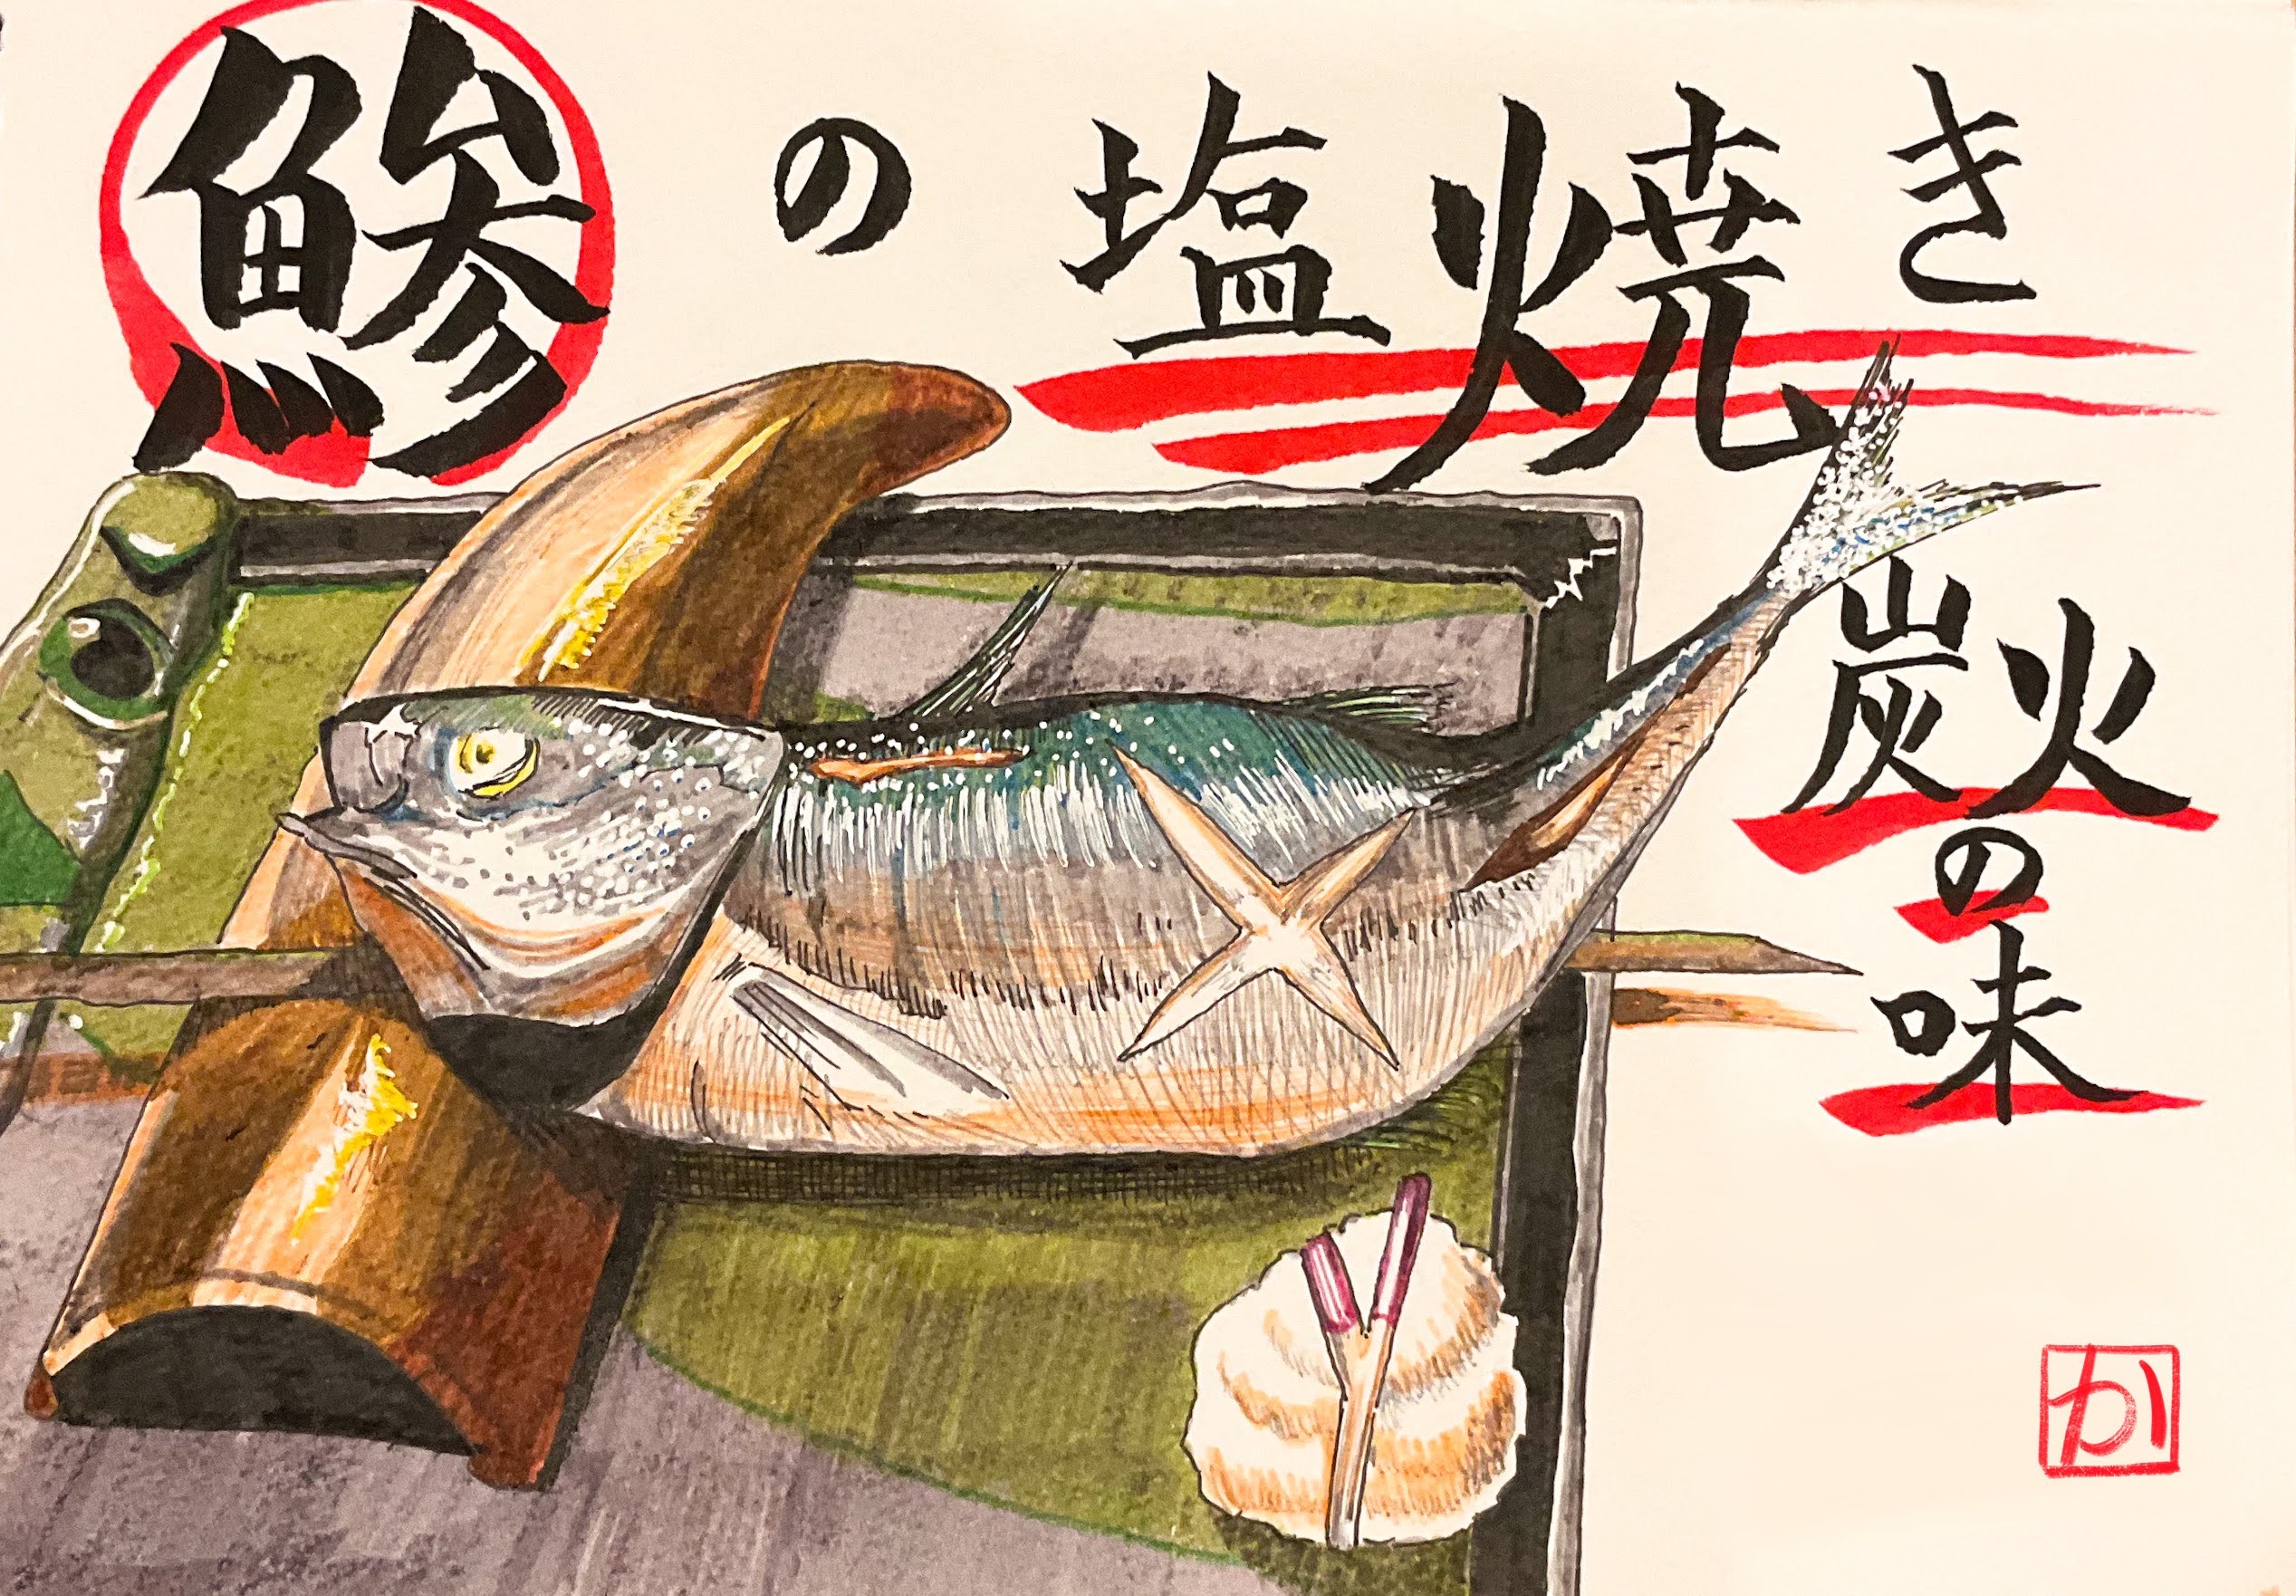 鯵の塩焼き
炭火の味
か